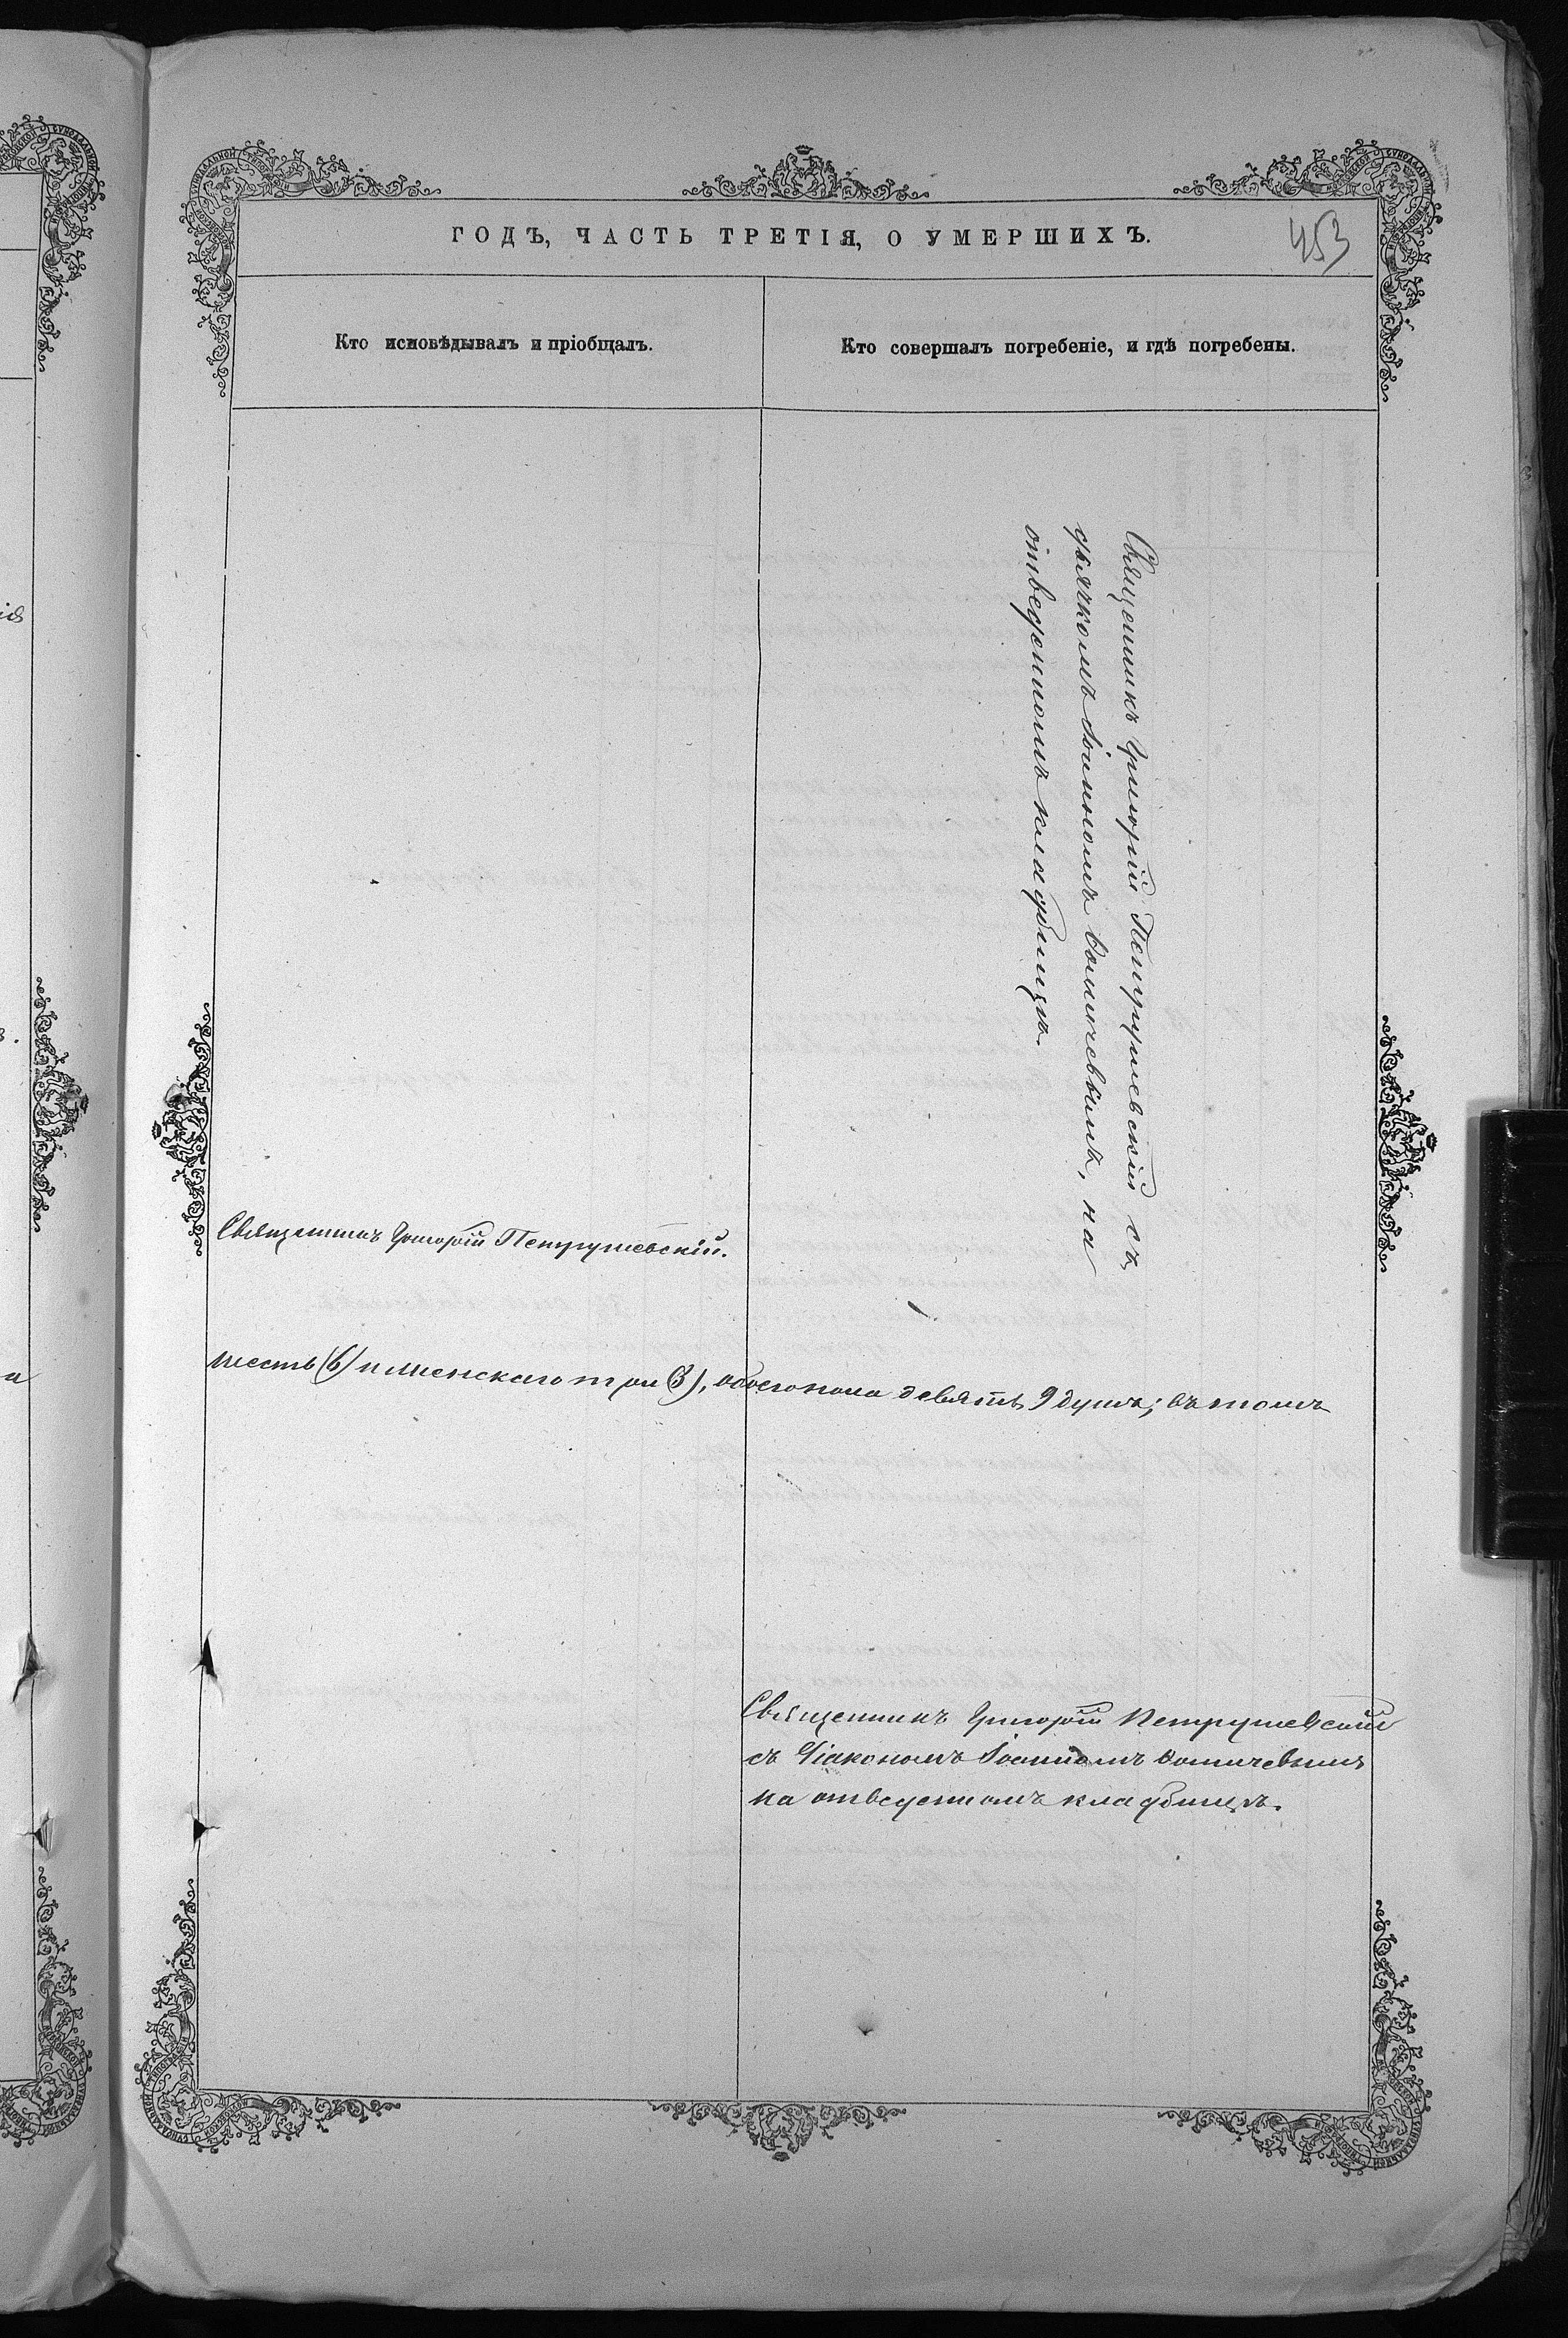 ГОДЪ, ЧАСТЬ ТРЕТІЯ, О УМЕРШИХЪ.
453
Кто исповѣдывалъ и пріобщалъ.
Кто совершалъ погребеніе, и гдѣ погребены.
Священникъ Григорій Петрушевскій съ
дьячкомъ Іоанномъ на
отведенномъ кладбищѣ.
Священникъ Григорій Петрушевскій.
шесть (6) и женскаго три (3), обоего пола девять 9 душъ; въ томъ
Священникъ Григорій Петрушевскій
съ Діакономъ Іоанномъ
на отведенномъ кладбищѣ.